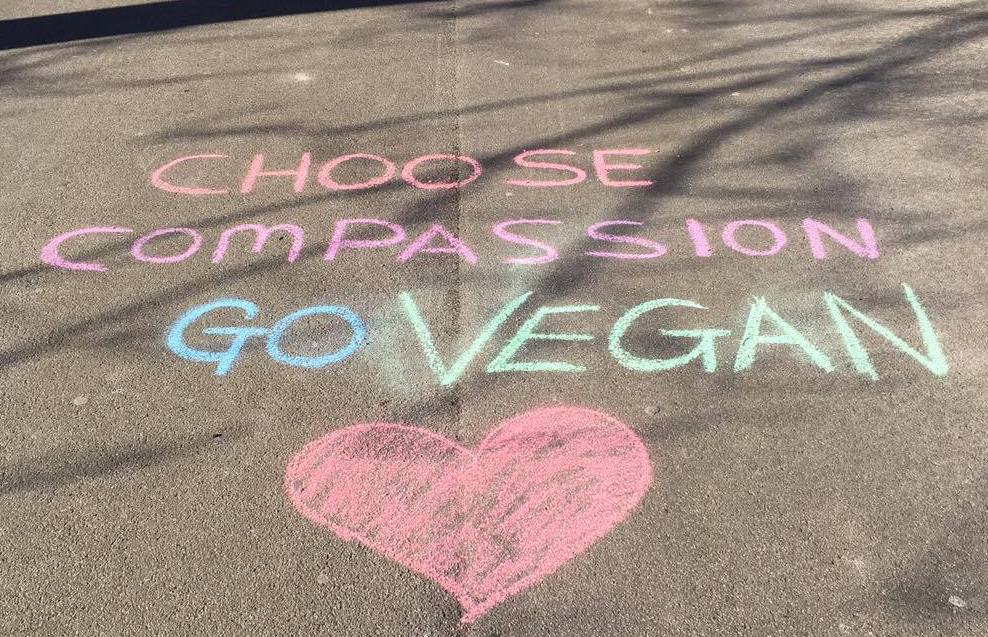 CHOOSE
COMPASSION
GO VEGAN